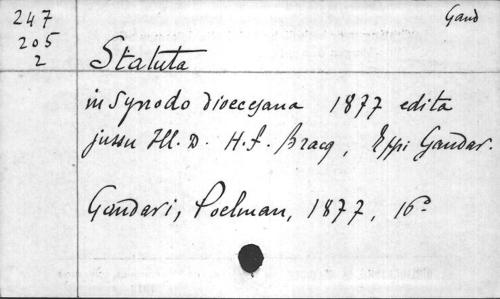 247
205
2
Gand
Statuta
in Synodo dioecesana 1877 edita
jussu Ill. D. H. F. Bracq, Eppi Gandav.
Gandavi, Poelman, 1877, 16°